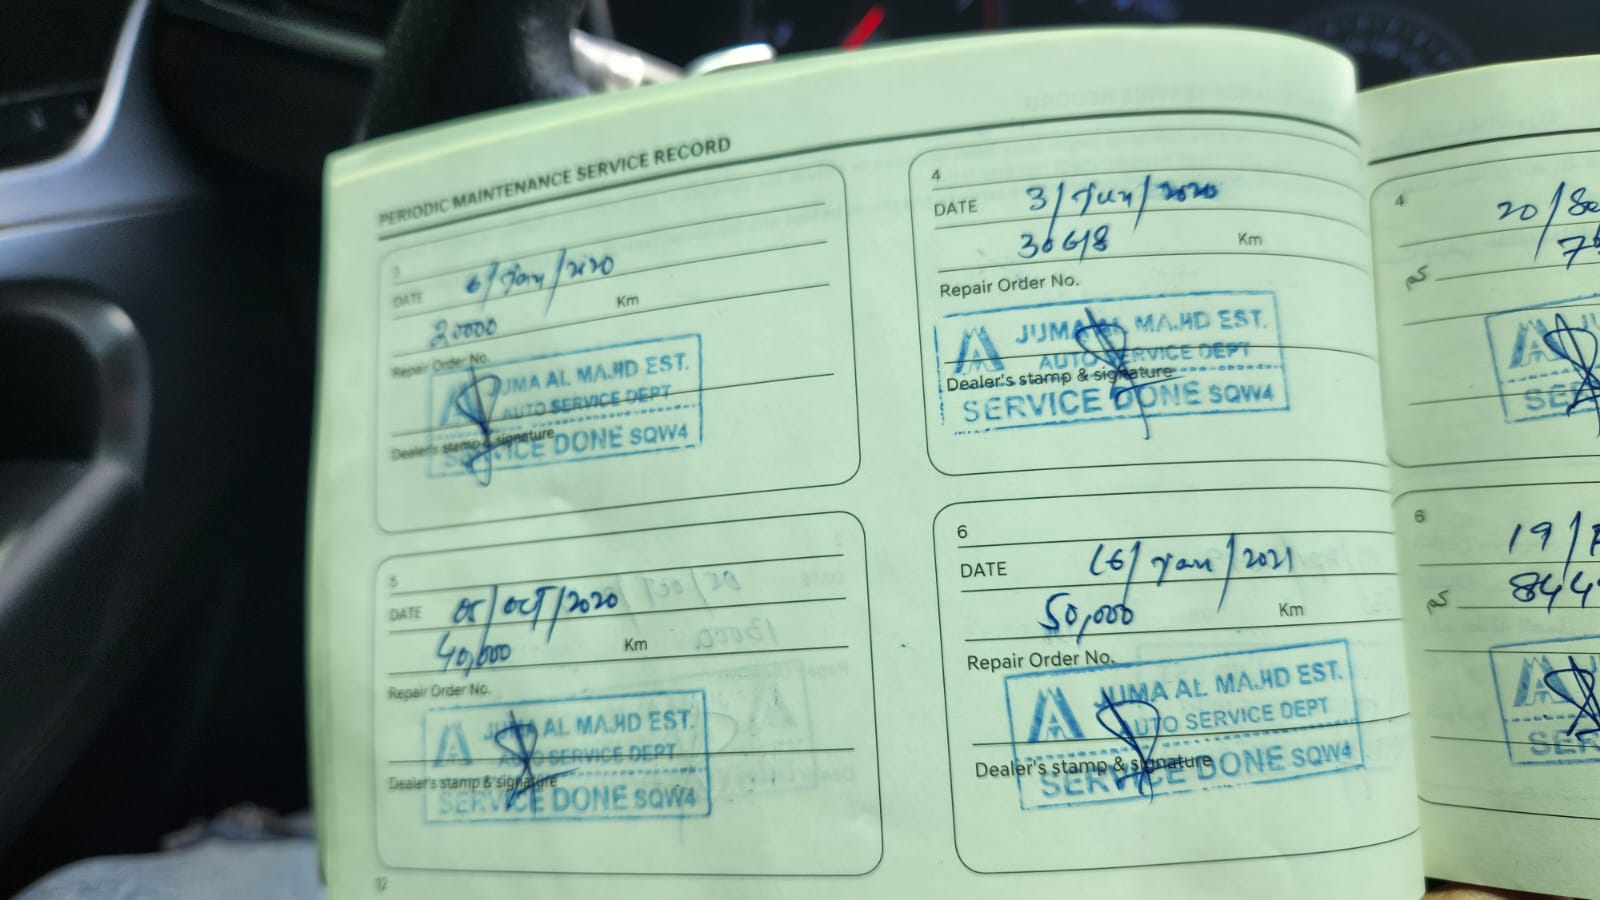 PERIODIC MAINTENANCE SERVICE RECORD
3
DATE 6/Jan/2020
20000 Km
Repair Order No.
JUMA AL MAJID EST.
AUTO SERVICE DEPT
Dealer's stamp & signature
SERVICE DONE SQW4
4
DATE 3/Jun/2020
30618 Km
Repair Order No.
JUMA AL MAJID EST.
AUTO SERVICE DEPT
Dealer's stamp & signature
SERVICE DONE SQW4
5
DATE 05/OCT/2020
40,000 Km
Repair Order No.
JUMA AL MAJID EST.
AUTO SERVICE DEPT
Dealer's stamp & signature
SERVICE DONE SQW4
6
DATE 16/Jan/2021
50,000 Km
Repair Order No.
JUMA AL MAJID EST.
AUTO SERVICE DEPT
Dealer's stamp & signature
SERVICE DONE SQW4
12
4
20/
كم
6
19/
844
كم